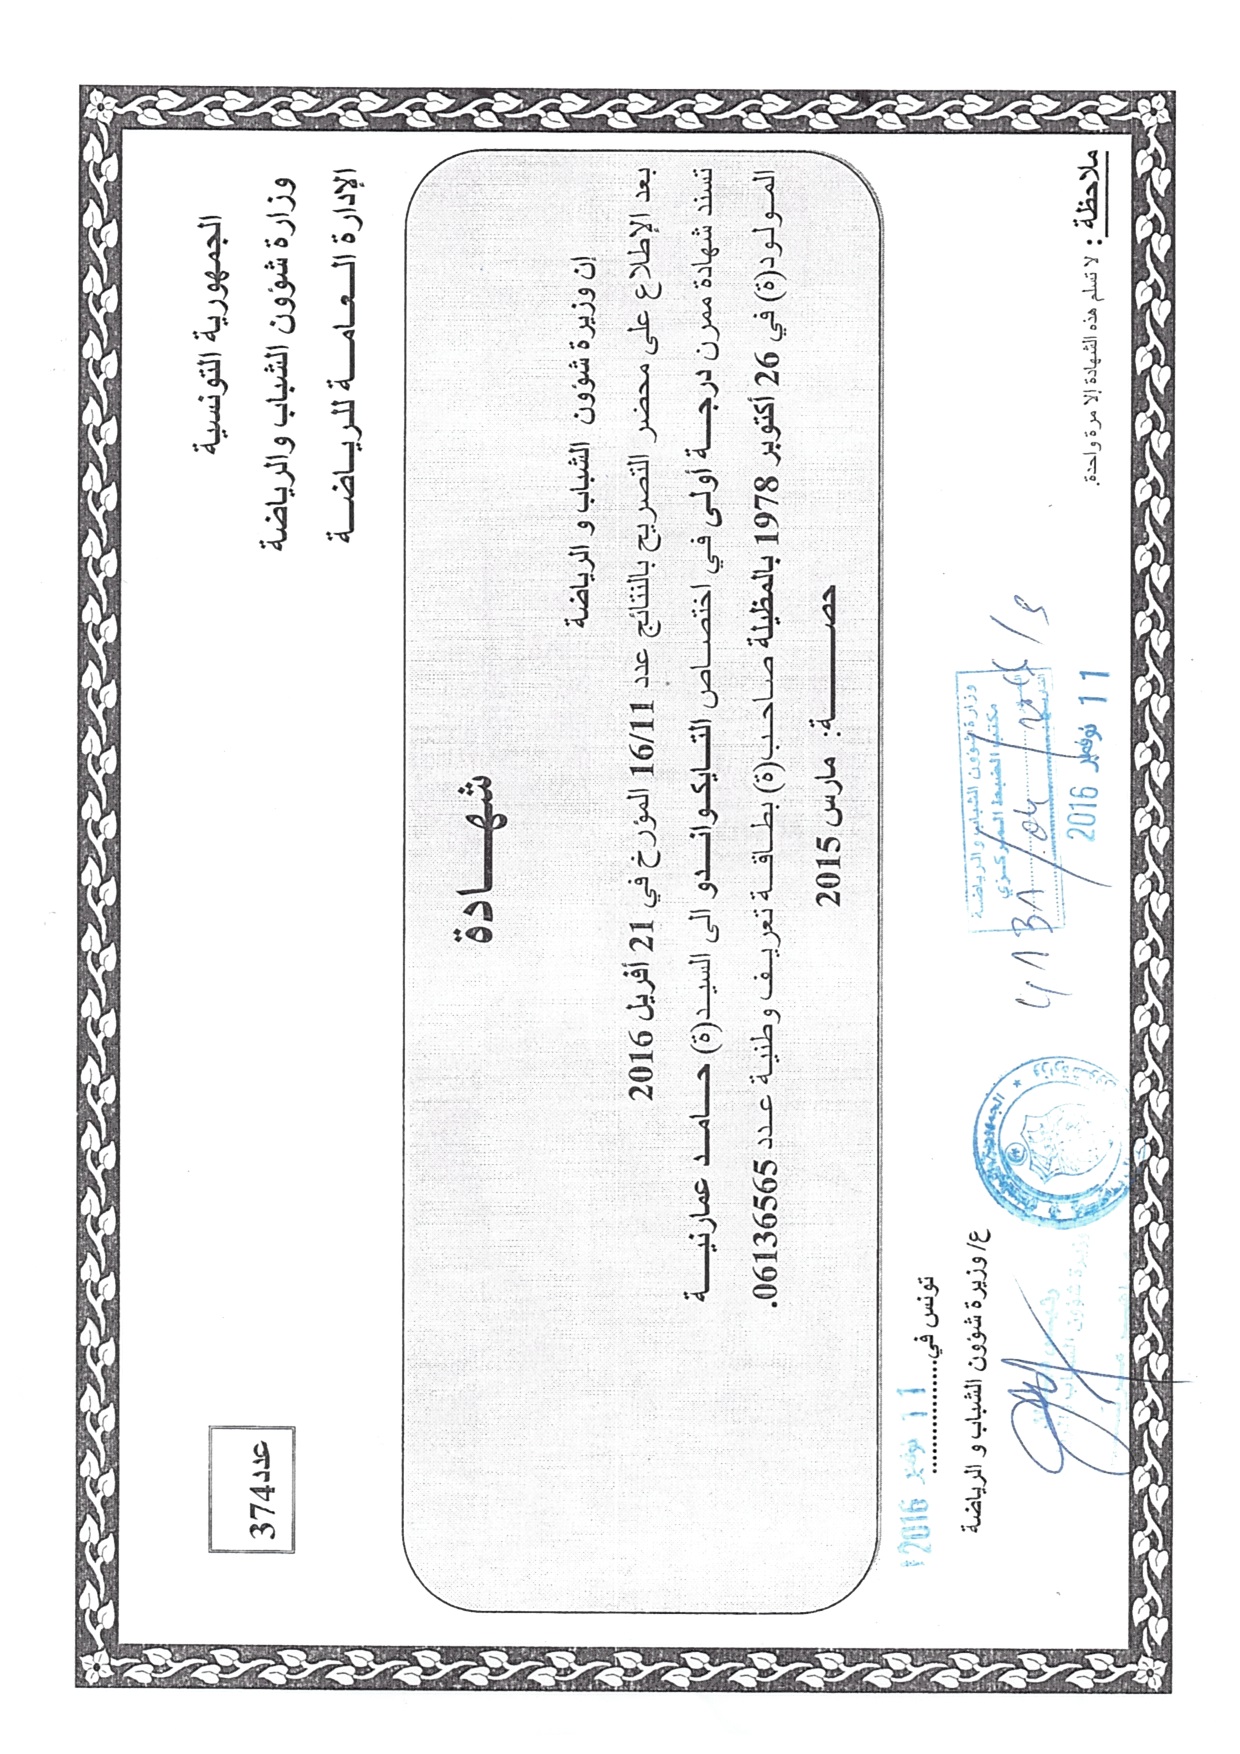 الجمهورية التونسية
وزارة شؤون الشباب والرياضة
الإدارة الـعـامــة للريـاضــة
عدد374
شهـــادة
إن وزيرة شؤون الشباب و الرياضة
بعد الإطلاع على محضر التصريح بالنتائج عدد 16/11 المؤرخ في 21 أفريل 2016
تسند شهادة ممرن درجــة أولى في اختصاص التـايكـوانـدو الى السيـد(ة) حــامـد عمارنيــة
المولود(ة) في 26 أكتوبر 1978 بالمظيلة صاحب(ة) بطاقـة تعريـف وطنية عـدد 06136565.
حصـــــة: مارس 2015
تونس في..............
11 نوفمبر 2016
ع/ وزيرة شؤون الشباب و الرياضة
وزارة شؤون الشباب والرياضة
مكتب الضبط المركزي
11 نوفمبر 2016
ملاحظة : لا تسلم هذه الشهادة إلا مرة واحدة.